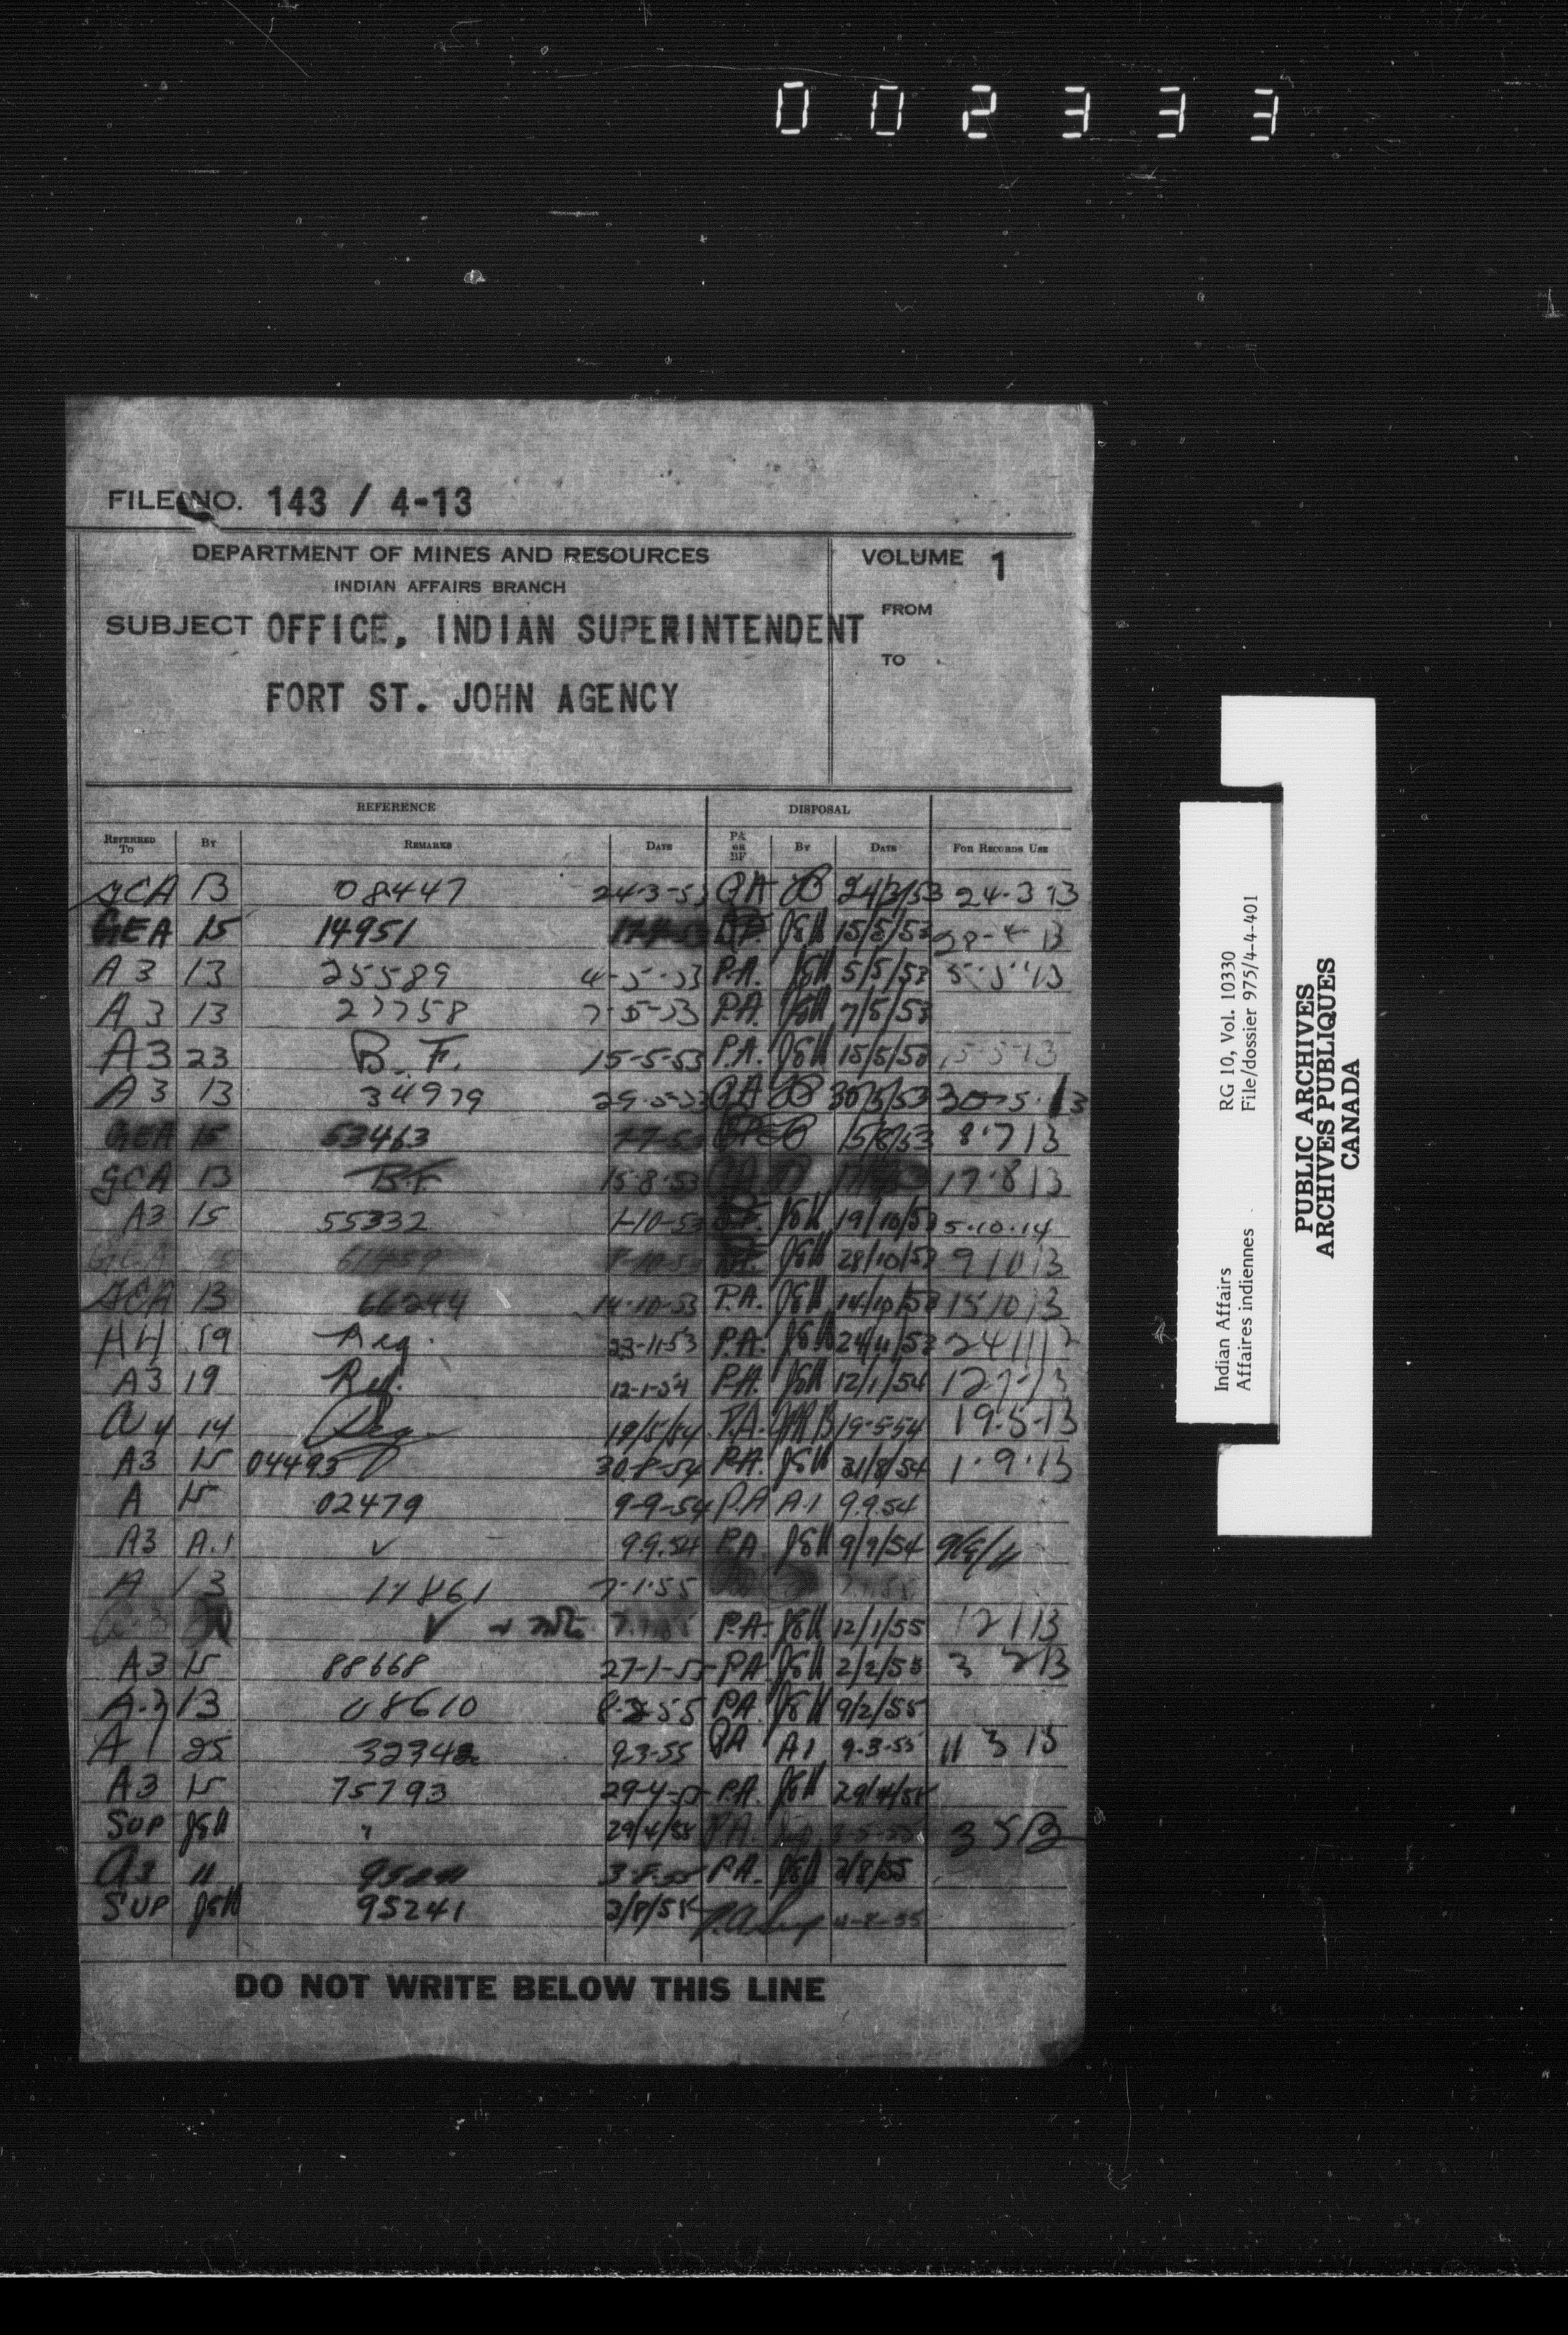 002333
FILE NO. 143 / 4-13
DEPARTMENT OF MINES AND RESOURCES
INDIAN AFFAIRS BRANCH
SUBJECT OFFICE, INDIAN SUPERINTENDENT
FORT ST. JOHN AGENCY
VOLUME 1
FROM
TO
REFERENCE DISPOSAL
REFERRED TO BY REMARKS DATE PA OR BF BY DATE FOR RECORDS USE
13 08447 24-3-53 PA 24/3/53 24-3 13
GEA 15 14951 JGH 15/5/53 28-4 13
A3 13 25589 4-5-53 P.A. JGH 5/5/53 5-5-13
A3 13 27758 7-5-53 P.A. JGH 7/5/53
A3 23 B.F. 15-5-53 P.A. JGH 15/5/53 15-5-13
A3 13 34979 29-5-53 PA 30/5/53 30-5-13
GEA 15 53463 7-7-53 15/8/53 8-7 13
13 B.F. 15-8-53 17-8 13
A3 15 55332 1-10-53 JGH 19/10/53 5-10-14
JGH 28/10/53 9 10 13
13 66244 14-10-53 P.A. JGH 14/10/53 15 10 13
19 Reg. 23-11-53 P.A. JGH 24/11/53
A3 19 12-1-54 P.A. JGH 12/1/54
14 19/5/54 P.A. 19-5-54 19-5-13
A3 15 04495 30-8-54 P.A. JGH 31/8/54 1-9-13
A 15 02479 9-9-54 P.A A.1 9.9.54
A3 A.1 ✓ 9.9.54 P.A. JGH 9/9/54
A 13 17861 7-1-55
✓ P.A. JGH 12/1/55 12 1 13
A3 15 88668 27-1-55 PA JGH 2/2/55 3 2 13
A.3 13 08610 8-2-55 PA. JGH 9/2/55
A1 25 32342 9-3-55 PA A1 9-3-55 11 3 13
A3 15 75793 29-4-55 P.A. JGH 29/4/55
SUP JGH " 29/4/55 P.A. 3 5 13
A3 11 3-8-55 P.A. JGH 3/8/55
SUP JGH 95241 3/8/55 P.A. 4-8-55
DO NOT WRITE BELOW THIS LINE
Indian Affairs RG 10, Vol. 10330
Affaires indiennes File/dossier 975/4-4-401
PUBLIC ARCHIVES
ARCHIVES PUBLIQUES
CANADA